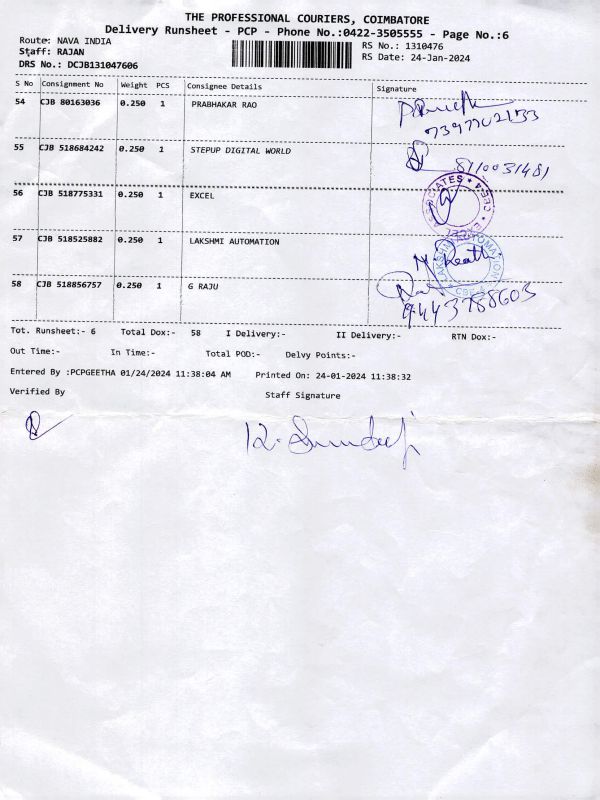 THE PROFESSIONAL COURIERS, COIMBATORE
Delivery Runsheet - PCP - Phone No.:0422-3505555 - Page No.:6
Route: NAVA INDIA
Staff: RAJAN
DRS No.: DCJB131047606
RS No.: 1310476
RS Date: 24-Jan-2024
S No Consignment No Weight PCS Consignee Details Signature
54 CJB 80163036 0.250 1 PRABHAKAR RAO
55 CJB 518684242 0.250 1 STEPUP DIGITAL WORLD
8110031481
56 CJB 518775331 0.250 1 EXCEL
57 CJB 518525882 0.250 1 LAKSHMI AUTOMATION
58 CJB 518856757 0.250 1 G RAJU
9443788603
Tot. Runsheet:- 6 Total Dox:- 58 I Delivery:- II Delivery:- RTN Dox:-
Out Time:- In Time:- Total POD:- Delvy Points:-
Entered By :PCPGEETHA 01/24/2024 11:38:04 AM Printed On: 24-01-2024 11:38:32
Verified By Staff Signature